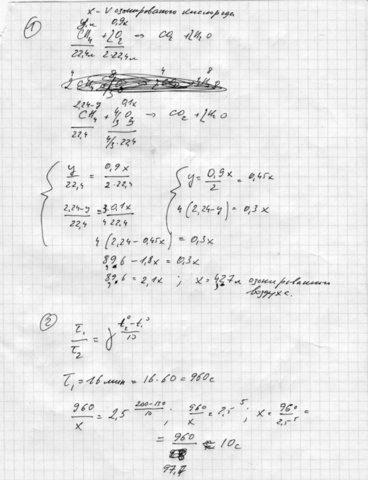 x - V озонированного кислорода
①
y л 0,9x
CH₄ + 2O₂ → CO₂ + 2H₂O
22,4л 2·22,4л
2,24-y 0,1x
CH₄ + 4/3 O₃ → CO₂ + 2H₂O
22,4 4/3·22,4
y/22,4 = 0,9x/2·22,4
y = 0,9x/2 = 0,45x
2,24-y/22,4 = 3·0,1x/4·22,4
4(2,24-y) = 0,3x
4(2,24-0,45x) = 0,3x
8,96 - 1,8x = 0,3x
8,96 = 2,1x ; x = 4,27л озонированного
воздуха.
②
τ₁/τ₂ = γ^(t₂°-t₁°/10)
τ₁ = 16 мин = 16·60 = 960с
960/x = 2,5^(200-150/10) ; 960/x = 2,5⁵ ; x = 960/2,5⁵ =
= 960/97,7 ≈ 10с